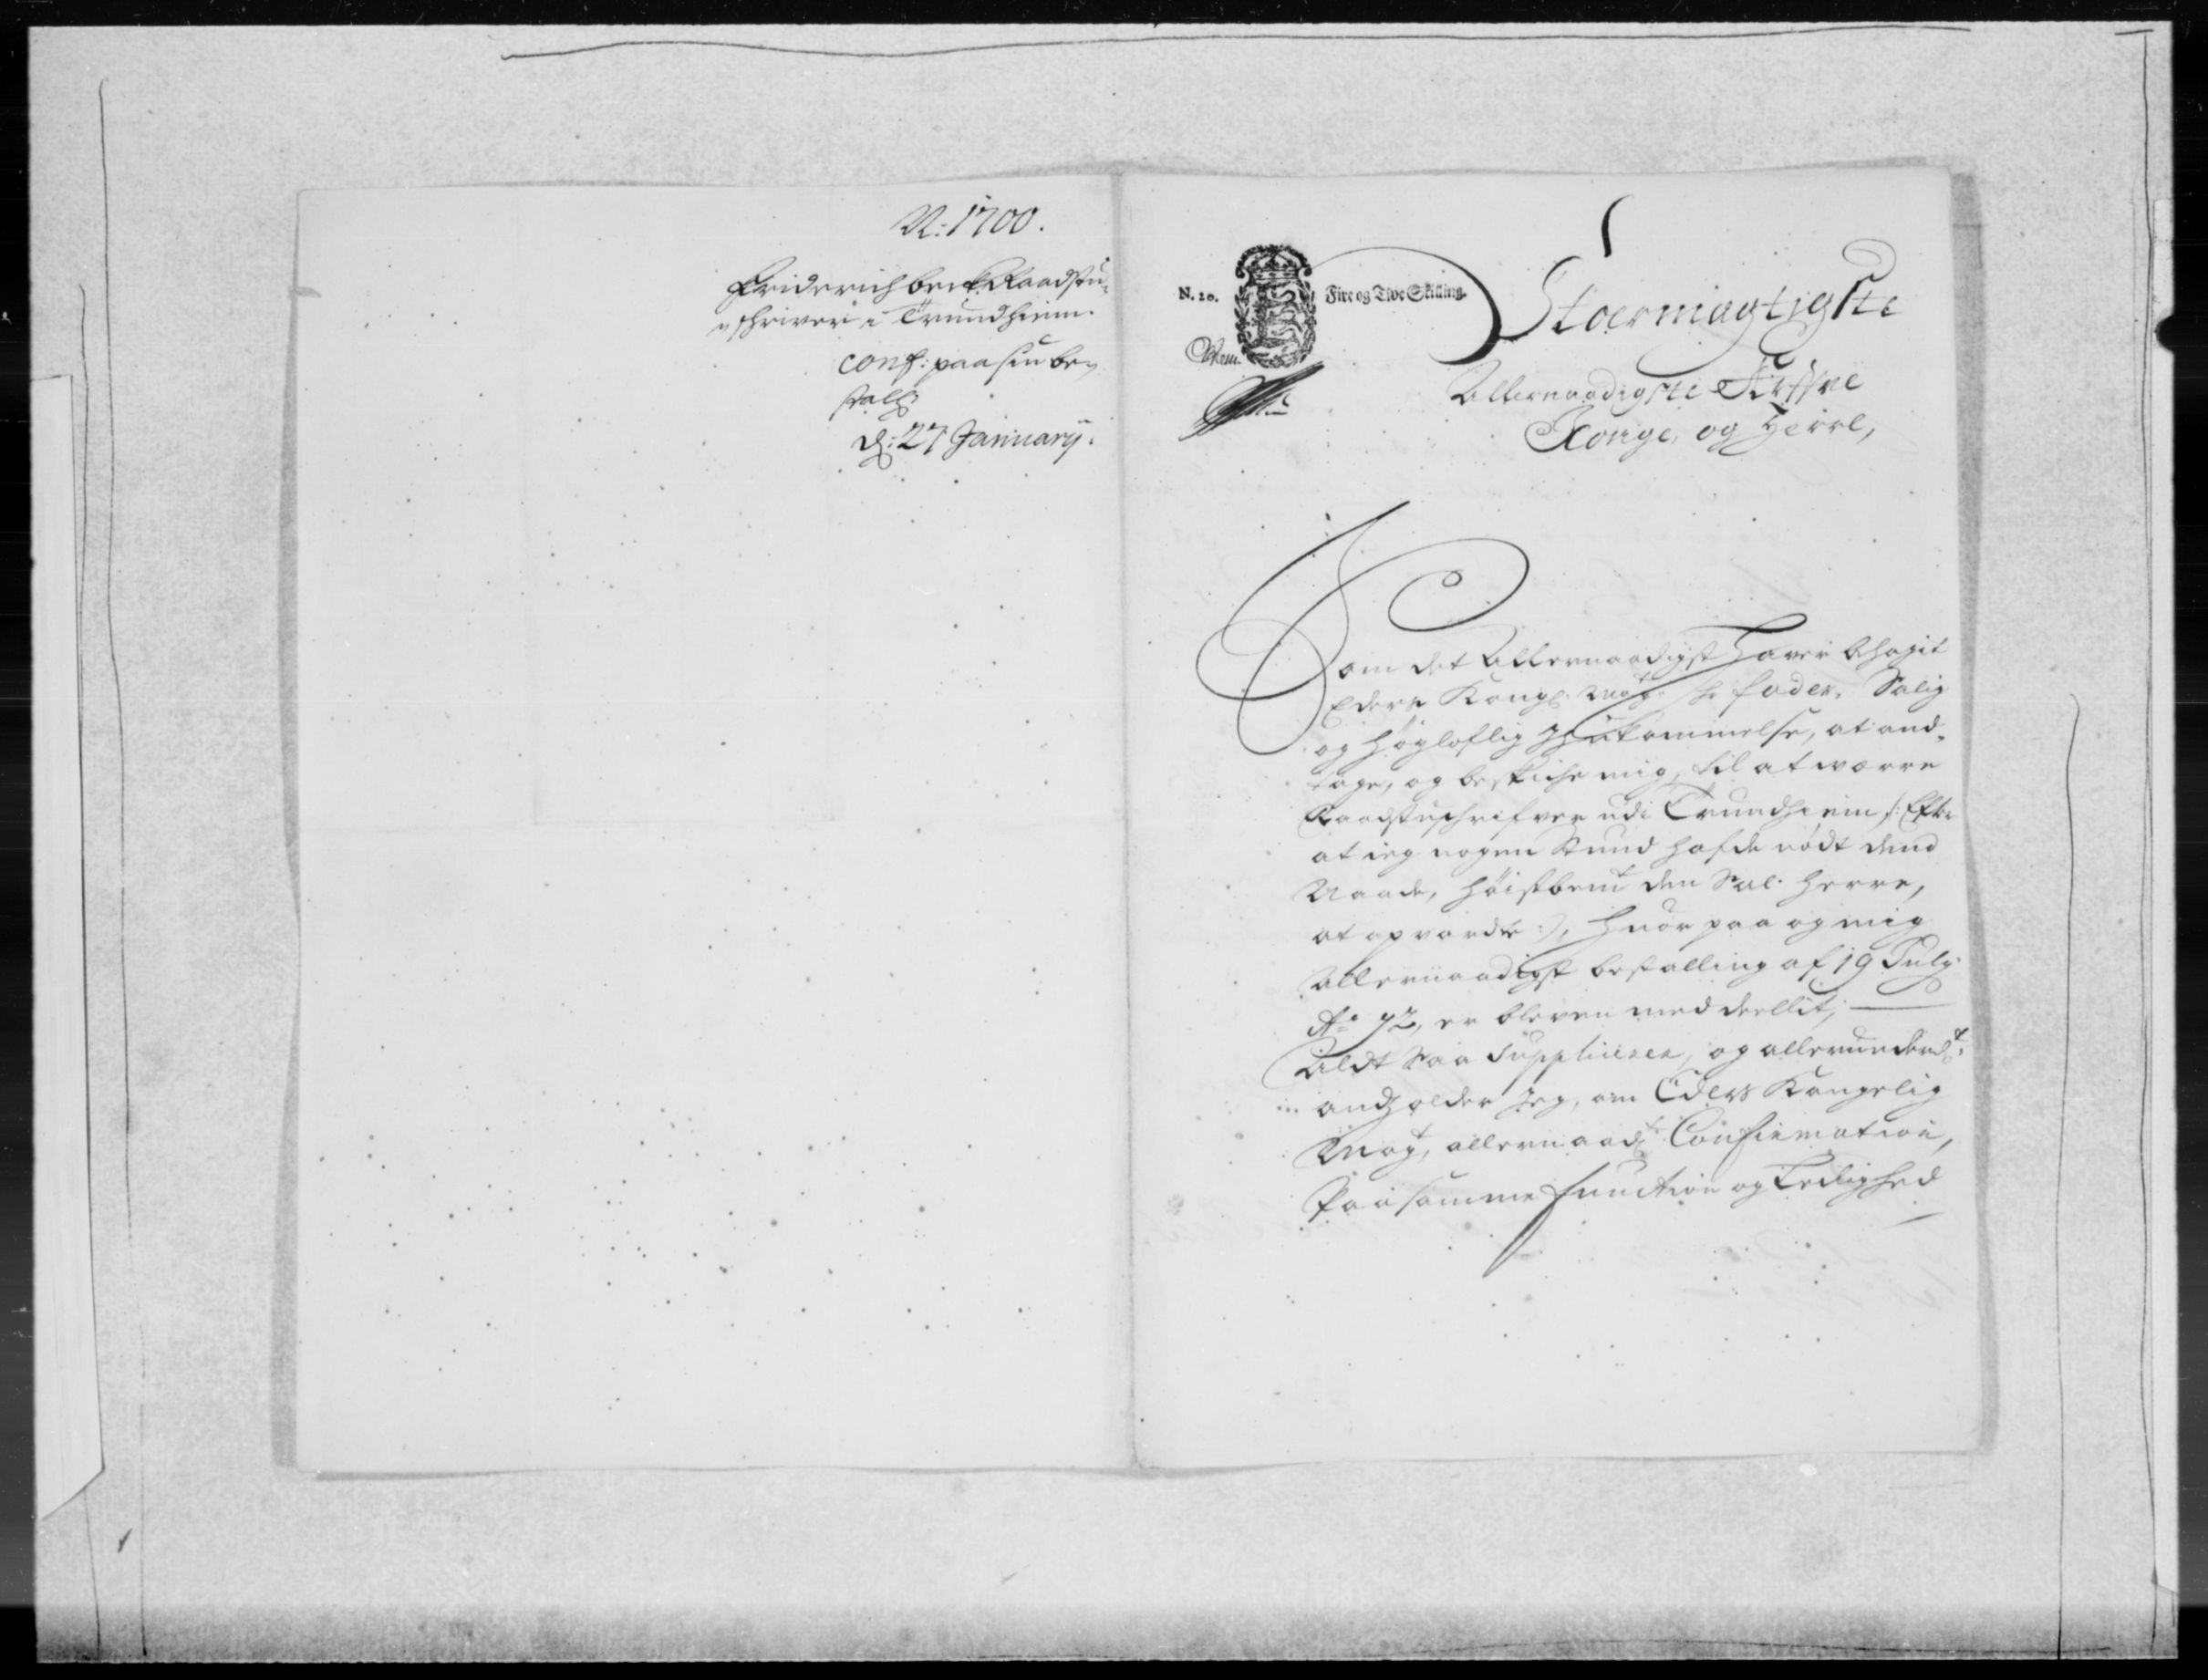 N: 1700.
Friderich berk Raadstu-
schriver i Trundhiem.
conf: paa sin be-
stall:
d: 27 Januarij.
N. 20. Fire og Tive Skilling.
Stoermægtigste
Allernaadigste Arffve
Konge, og Herre,
Som det Allernaadigst haver behagit
Eders Kongl: Mayt: Hr fader, Salig
og Højloflig Ihukommelse, at and-
tage, og beskiche mig, til at værre
Raadstuschrifver udi Trundhiem /: Efter
at ieg nogen stund hafde nødt dend
Naade, høistbemt den Sal. Herre,
at opvarde :/, huor paa og mig
Allernaadigst bestalling af 19 July
Ao 92, er bleven meddeellit,
Aldt saa Supplicerer, og allerunderdt:
andholder Jeg, om Eders Kongelig
Mayt, allernaadt: Confirmation,
Paa samme function og Leilighed